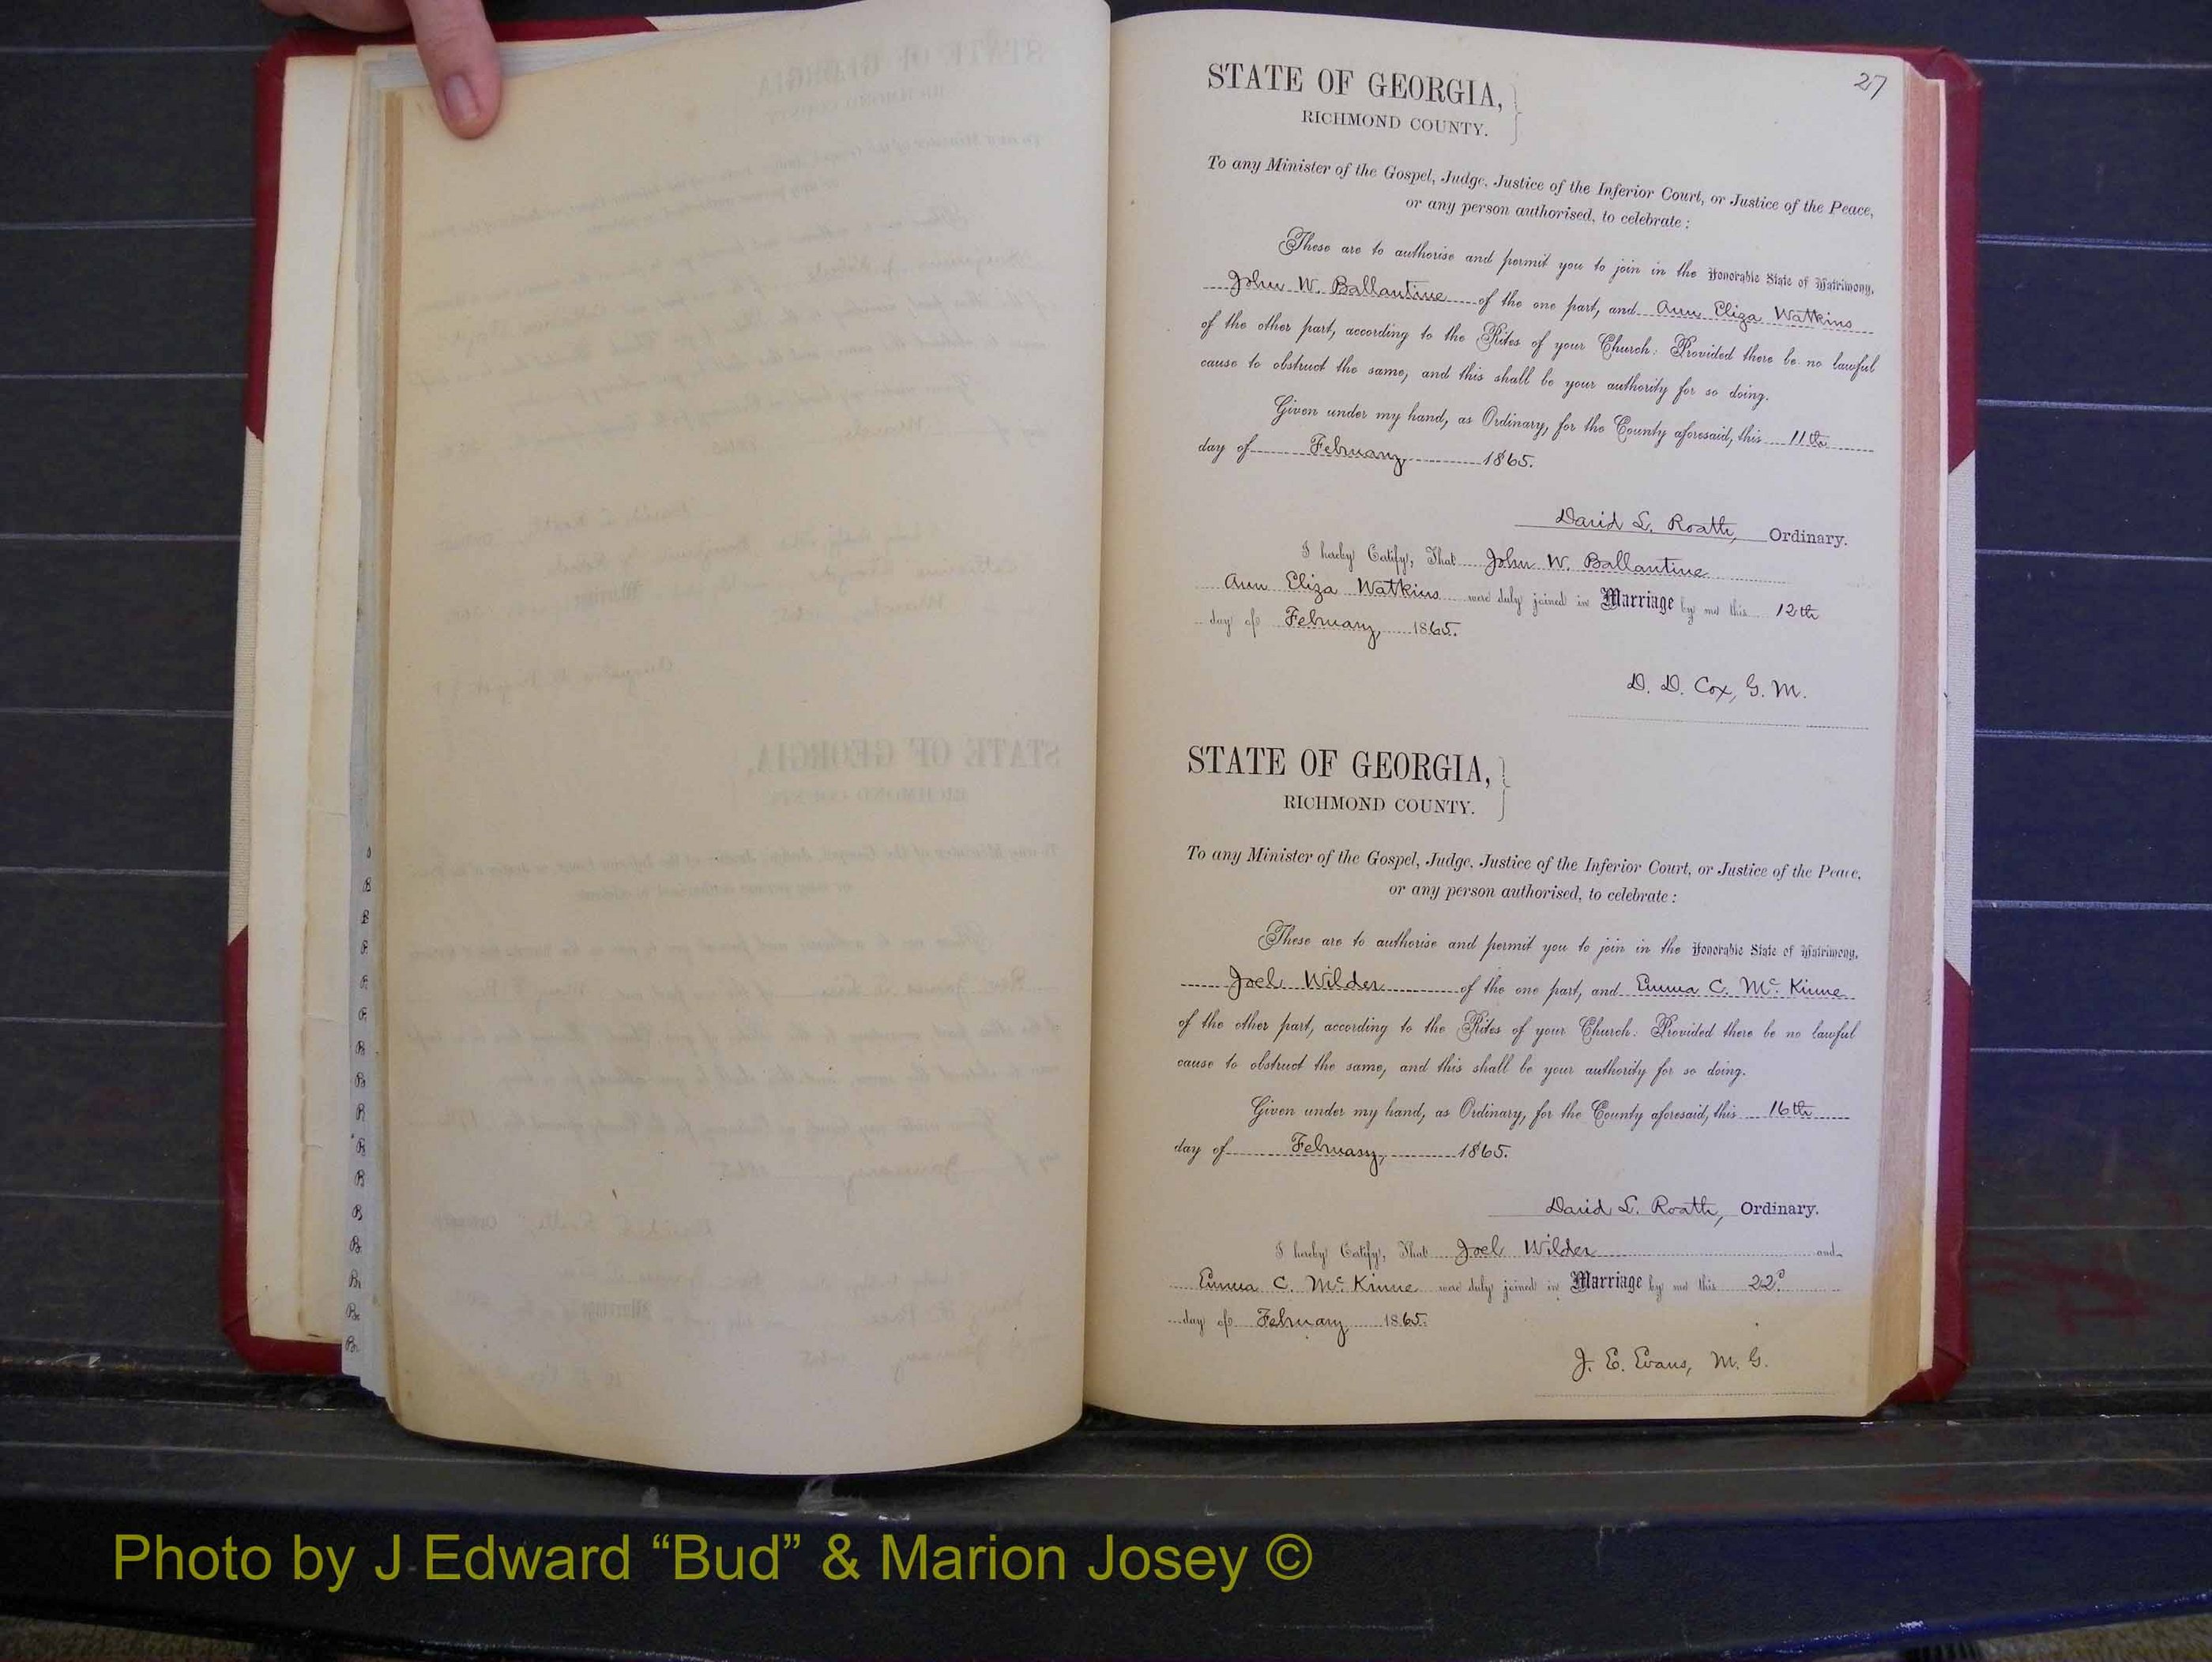 27
STATE OF GEORGIA,
RICHMOND COUNTY.
To any Minister of the Gospel, Judge, Justice of the Inferior Court, or Justice of the Peace,
or any person authorised, to celebrate:
These are to authorise and permit you to join in the Honorable State of Matrimony,
John W. Ballantine of the one part, and Ann Eliza Watkins
of the other part, according to the Rites of your Church: Provided there be no lawful
cause to obstruct the same, and this shall be your authority for so doing.
Given under my hand, as Ordinary, for the County aforesaid, this 11th
day of February 1865.
David L. Roath, Ordinary.
I hereby Certify, That John W. Ballantine
Ann Eliza Watkins were duly joined in Marriage by me this 12th
day of February, 1865.
D. D. Cox, G. M.
STATE OF GEORGIA,
RICHMOND COUNTY.
To any Minister of the Gospel, Judge, Justice of the Inferior Court, or Justice of the Peace,
or any person authorised, to celebrate:
These are to authorise and permit you to join in the Honorable State of Matrimony,
Joel Wilder of the one part, and Emma C. Mc Kinne
of the other part, according to the Rites of your Church: Provided there be no lawful
cause to obstruct the same, and this shall be your authority for so doing.
Given under my hand, as Ordinary, for the County aforesaid, this 16th
day of February, 1865.
David L. Roath, Ordinary.
I hereby Certify, That Joel Wilder and
Emma C. Mc Kinne were duly joined in Marriage by me this 22d
day of February 1865.
J. E. Evans, M. G.
Photo by J Edward “Bud” & Marion Josey ©